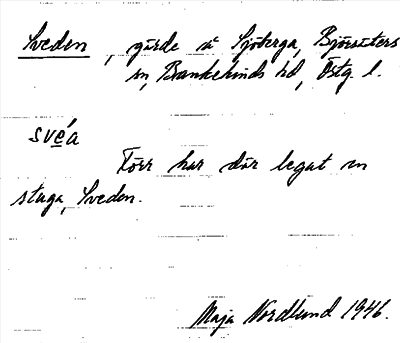 Sveden, gärde å Sjöberga, Björsäters
sn, Bankekinds hd, Östg. l.
svéa
Förr har där legat en
stuga, Sveden.
Maja Nordlund 1946.